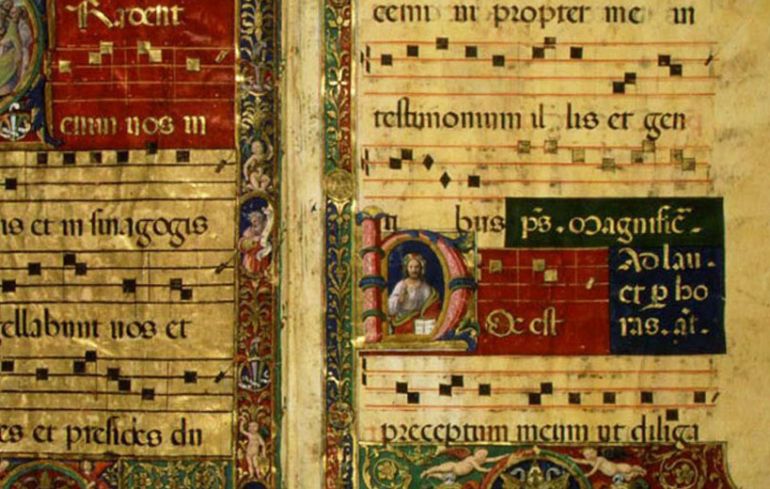 Radent
enim uos in
is et in sinagogis
gellabunt uos et
es et presides du
cemi ni propter me in
testimonium il lis et gen
ti bus p̄s. Magnific̄.
Ad lau.
et ꝑ ho
ras. añ.
H Oc est
preceptum meum ut diliga